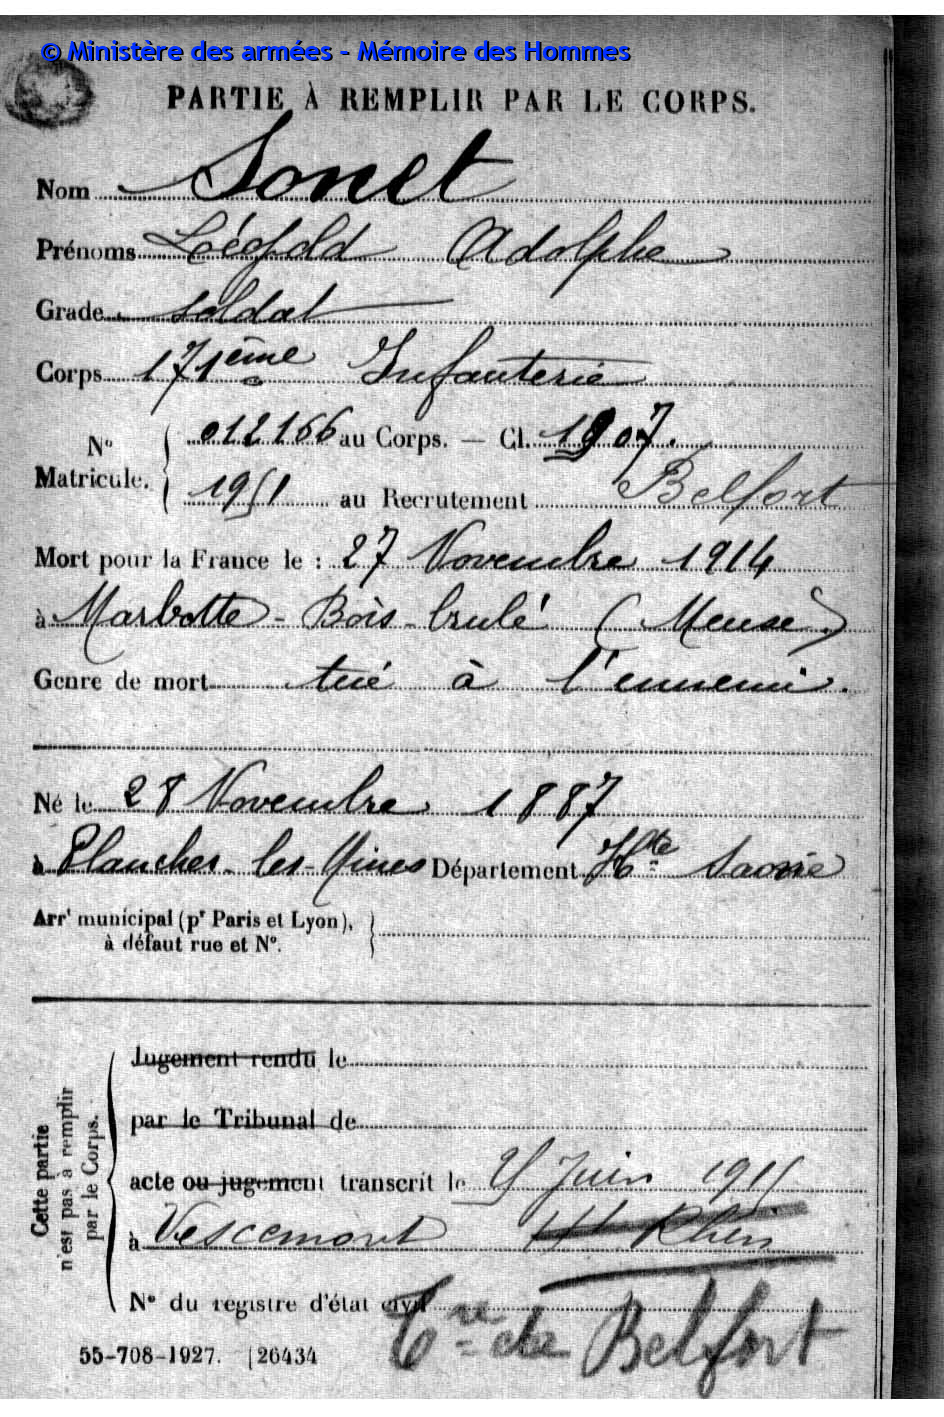 © Ministère des armées - Mémoire des Hommes
PARTIE À REMPLIR PAR LE CORPS.
Nom Sonet
Prénoms Léopold Adolphe
Grade soldat
Corps 171ème Infanterie
N° Matricule. { 012166 au Corps. — Cl. 1907.
1951 au Recrutement Belfort
Mort pour la France le : 27 Novembre 1914
à Marbotte - Bois-brulé (Meuse)
Genre de mort tué à l'ennemi.
Né le 28 Novembre 1887
à Plancher-les-Mines Département Hte Savoie
Arrt municipal (pr Paris et Lyon),
à défaut rue et N°.
Cette partie
n'est pas à remplir
par le Corps.
Jugement rendu le
par le Tribunal de
acte ou jugement transcrit le Juin 1915
à Vescemont Ht Rhin
N° du registre d'état civil
Tre de Belfort
55-708-1927. [26434